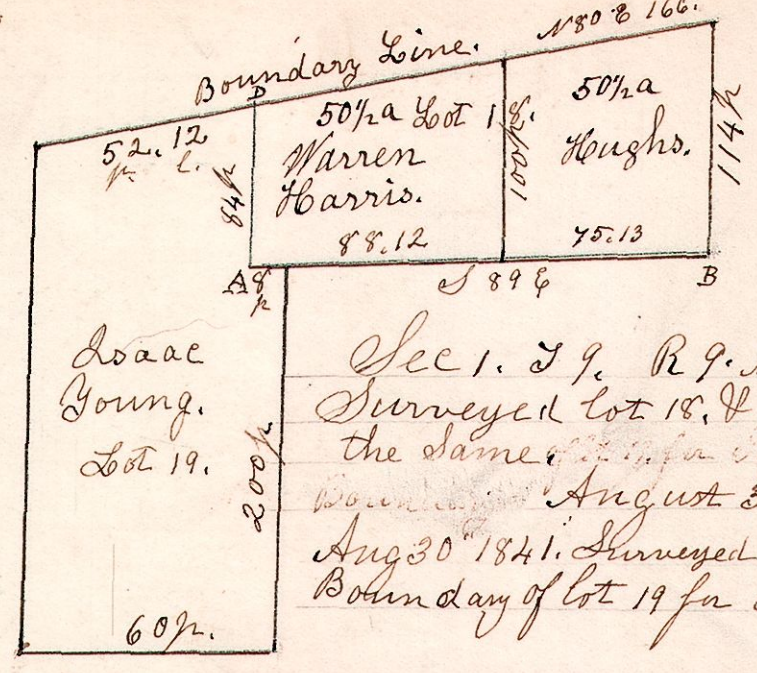 Boundary Line. N 80 E 166.
D
52.12
p. l.
84p
50½a Lot 18.
Warren
Harris.
88.12
100p
50½a
Hughs.
75.13
114p
A 8
p
S 89 E
B
Isaac
Young.
Lot 19.
200p
60p.
Sec 1. T 9. R 9.
Surveyed lot 18. &
the Same.
August 3
Aug 30 1841. Surveyed
Boundary of lot 19 for